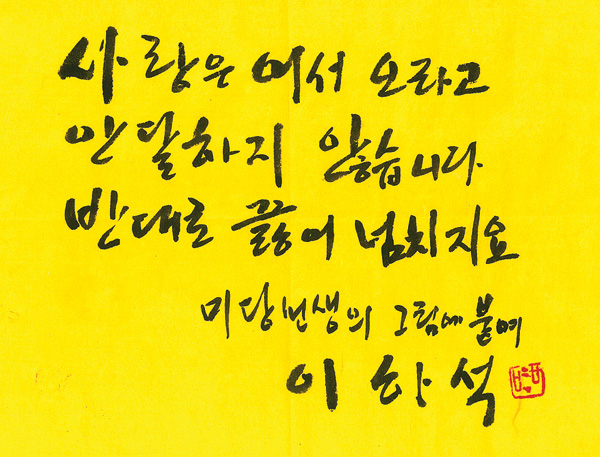 사랑은 어서 오라고
안달하지 않습니다.
반대로 끓어 넘치지요
미당 선생의 그림에 붙여
이하석